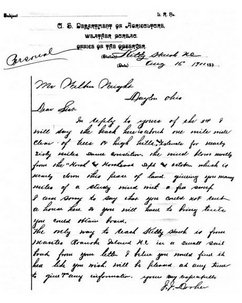 U. S. Department of Agriculture,
WEATHER BUREAU
OFFICE OF THE OBSERVER
Personal
Kitty Hawk N.C.
Aug 16
Mr Wilbur Wright
Dayton Ohio
Dear Sir,
In reply to yours of the
will say the beach here is about one mile wide
clear of trees or high hills, and for nearly
sixty miles same condition. the wind blows mostly
from the North & Northeast Sept & October which is
nearly down this piece of land giving you many
miles of a steady wind with a free sweep
I am sorry to say that you could not rent
a house here so you will have to bring tents
you could obtain board.
The only way to reach Kitty Hawk is from
Manteo Roanoke Island N.C. in a small sail
boat from your letter I believe you would find it
here like you wish will be pleased at any time
to give any information. yours very respectfully
J.J. Dosher